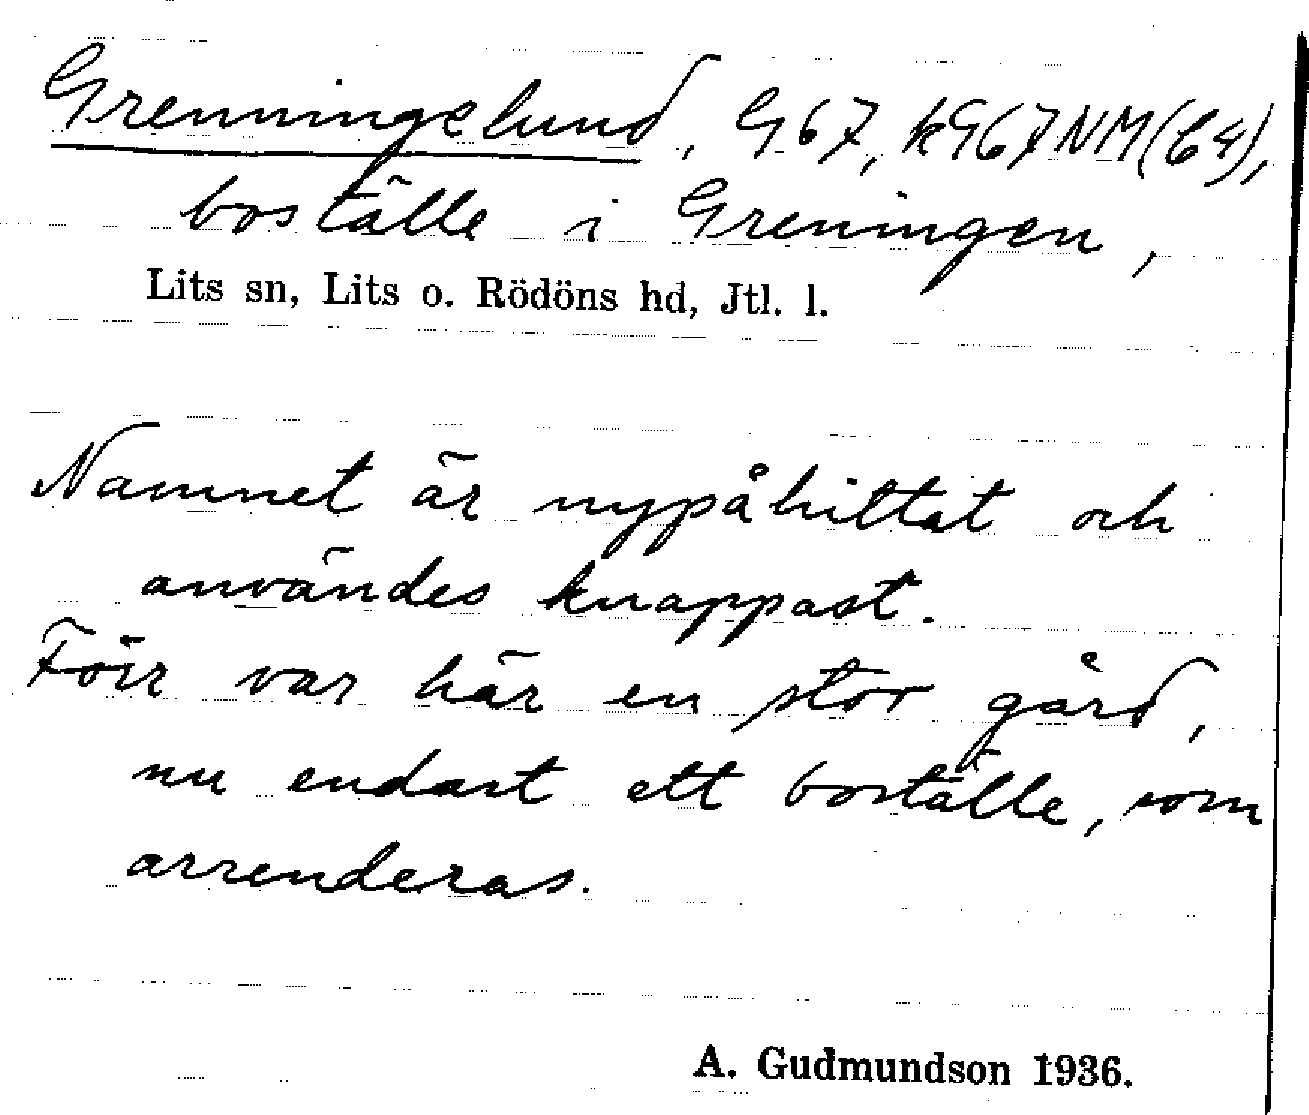 Grenningelund, G67, kG67NM(C4),
boställe i Greningen,
Lits sn, Lits o. Rödöns hd, Jtl. l.
Namnet är nypåhittat och
användes knappast.
Förr var här en stor gård,
nu endast ett boställe, som
arrenderas.
A. Gudmundson 1936.